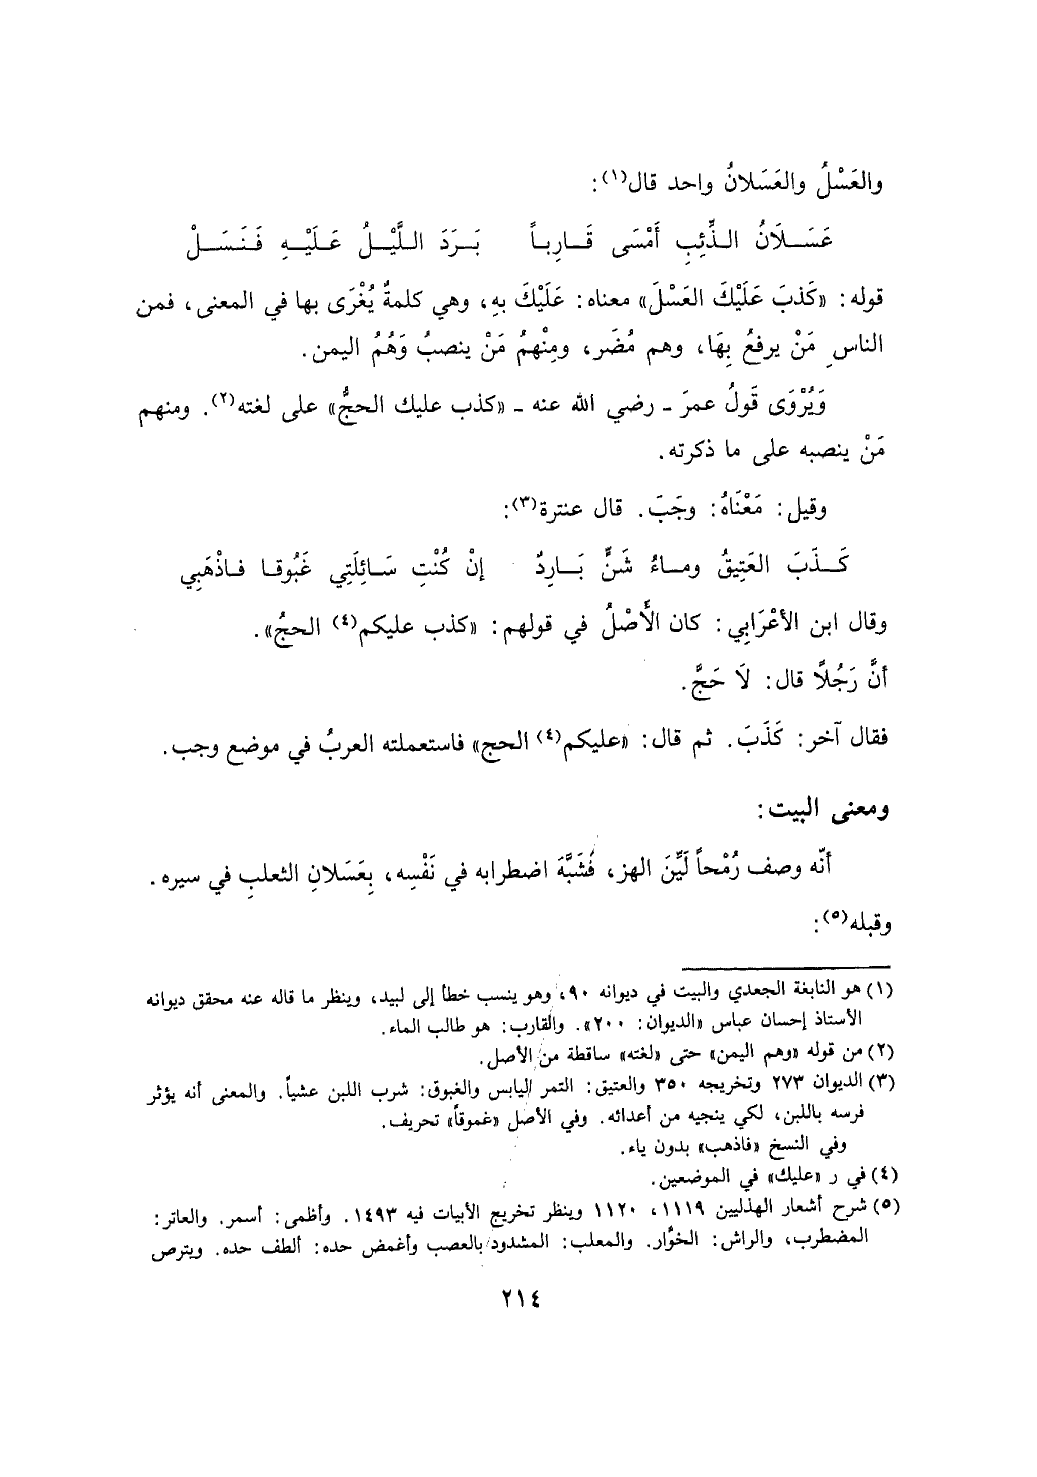 والعَسْلُ والعَسَلانُ واحد قال(١):
عَسَــلَانُ الـذِّئِبِ أَمْسَى قَـارِبـاً بَـرَدَ اللَّيْـلُ عَلَيْـهِ فَـنَسَـلْ
قوله: «كَذبَ عَلَيْكَ العَسْلَ» معناه: عَلَيْكَ بهِ، وهي كلمةٌ يُغْرَى بها في المعنى، فمن
الناسِ مَنْ يرفعُ بِهَا، وهم مُضَر، ومِنْهمُ مَنْ ينصبُ وَهُمُ اليمن.
وَيُرْوَى قَولُ عمرَ ـ رضي الله عنه ـ «كذب عليك الحجُّ» على لغته(٢). ومنهم
مَنْ ينصبه على ما ذكرته.
وقيل: مَعْنَاهُ: وجَبَ. قال عنترة(٣):
كَـذَبَ العَتِيقُ ومـاءُ شَنٍّ بَـارِدٌ إنْ كُنْتِ سَـائِلَتِي غَبُوقـا فـاذْهَبِي
وقال ابن الأعْرَابِي: كان الأَصْلُ في قولهم: «كذب عليكم(٤) الحجُ».
أنَّ رَجُلًا قال: لَا حَجَّ.
فقال آخر: كَذَبَ. ثم قال: «عليكم(٤) الحج» فاستعملته العربُ في موضع وجب.
ومعنى البيت:
أنّه وصف رُمْحاً لَيِّنَ الهز، فُشَبَّهَ اضطرابه في نَفْسِه، بِعَسَلانِ الثعلبِ في سيره.
وقبله(٥):
(١) هو النابغة الجعدي والبيت في ديوانه ٩٠، وهو ينسب خطأ إلى لبيد، وينظر ما قاله عنه محقق ديوانه
الأستاذ إحسان عباس «الديوان: ٢٠٠». والقارب: هو طالب الماء.
(٢) من قوله «وهم اليمن» حتى «لغته» ساقطة من الأصل.
(٣) الديوان ٢٧٣ وتخريجه ٣٥٠ والعتيق: التمر اليابس والغبوق: شرب اللبن عشياً. والمعنى أنه يؤثر
فرسه باللبن، لكي ينجيه من أعدائه. وفي الأصل «غموقاً» تحريف.
وفي النسخ «فاذهب» بدون ياء.
(٤) في ر «عليك» في الموضعين.
(٥) شرح أشعار الهذليين ١١١٩، ١١٢٠ وينظر تخريج الأبيات فيه ١٤٩٣. وأظمى: أسمر. والعاتر:
المضطرب، والراش: الخوَّار. والمعلب: المشدود بالعصب وأغمض حده: ألطف حده. ويترص
٢١٤